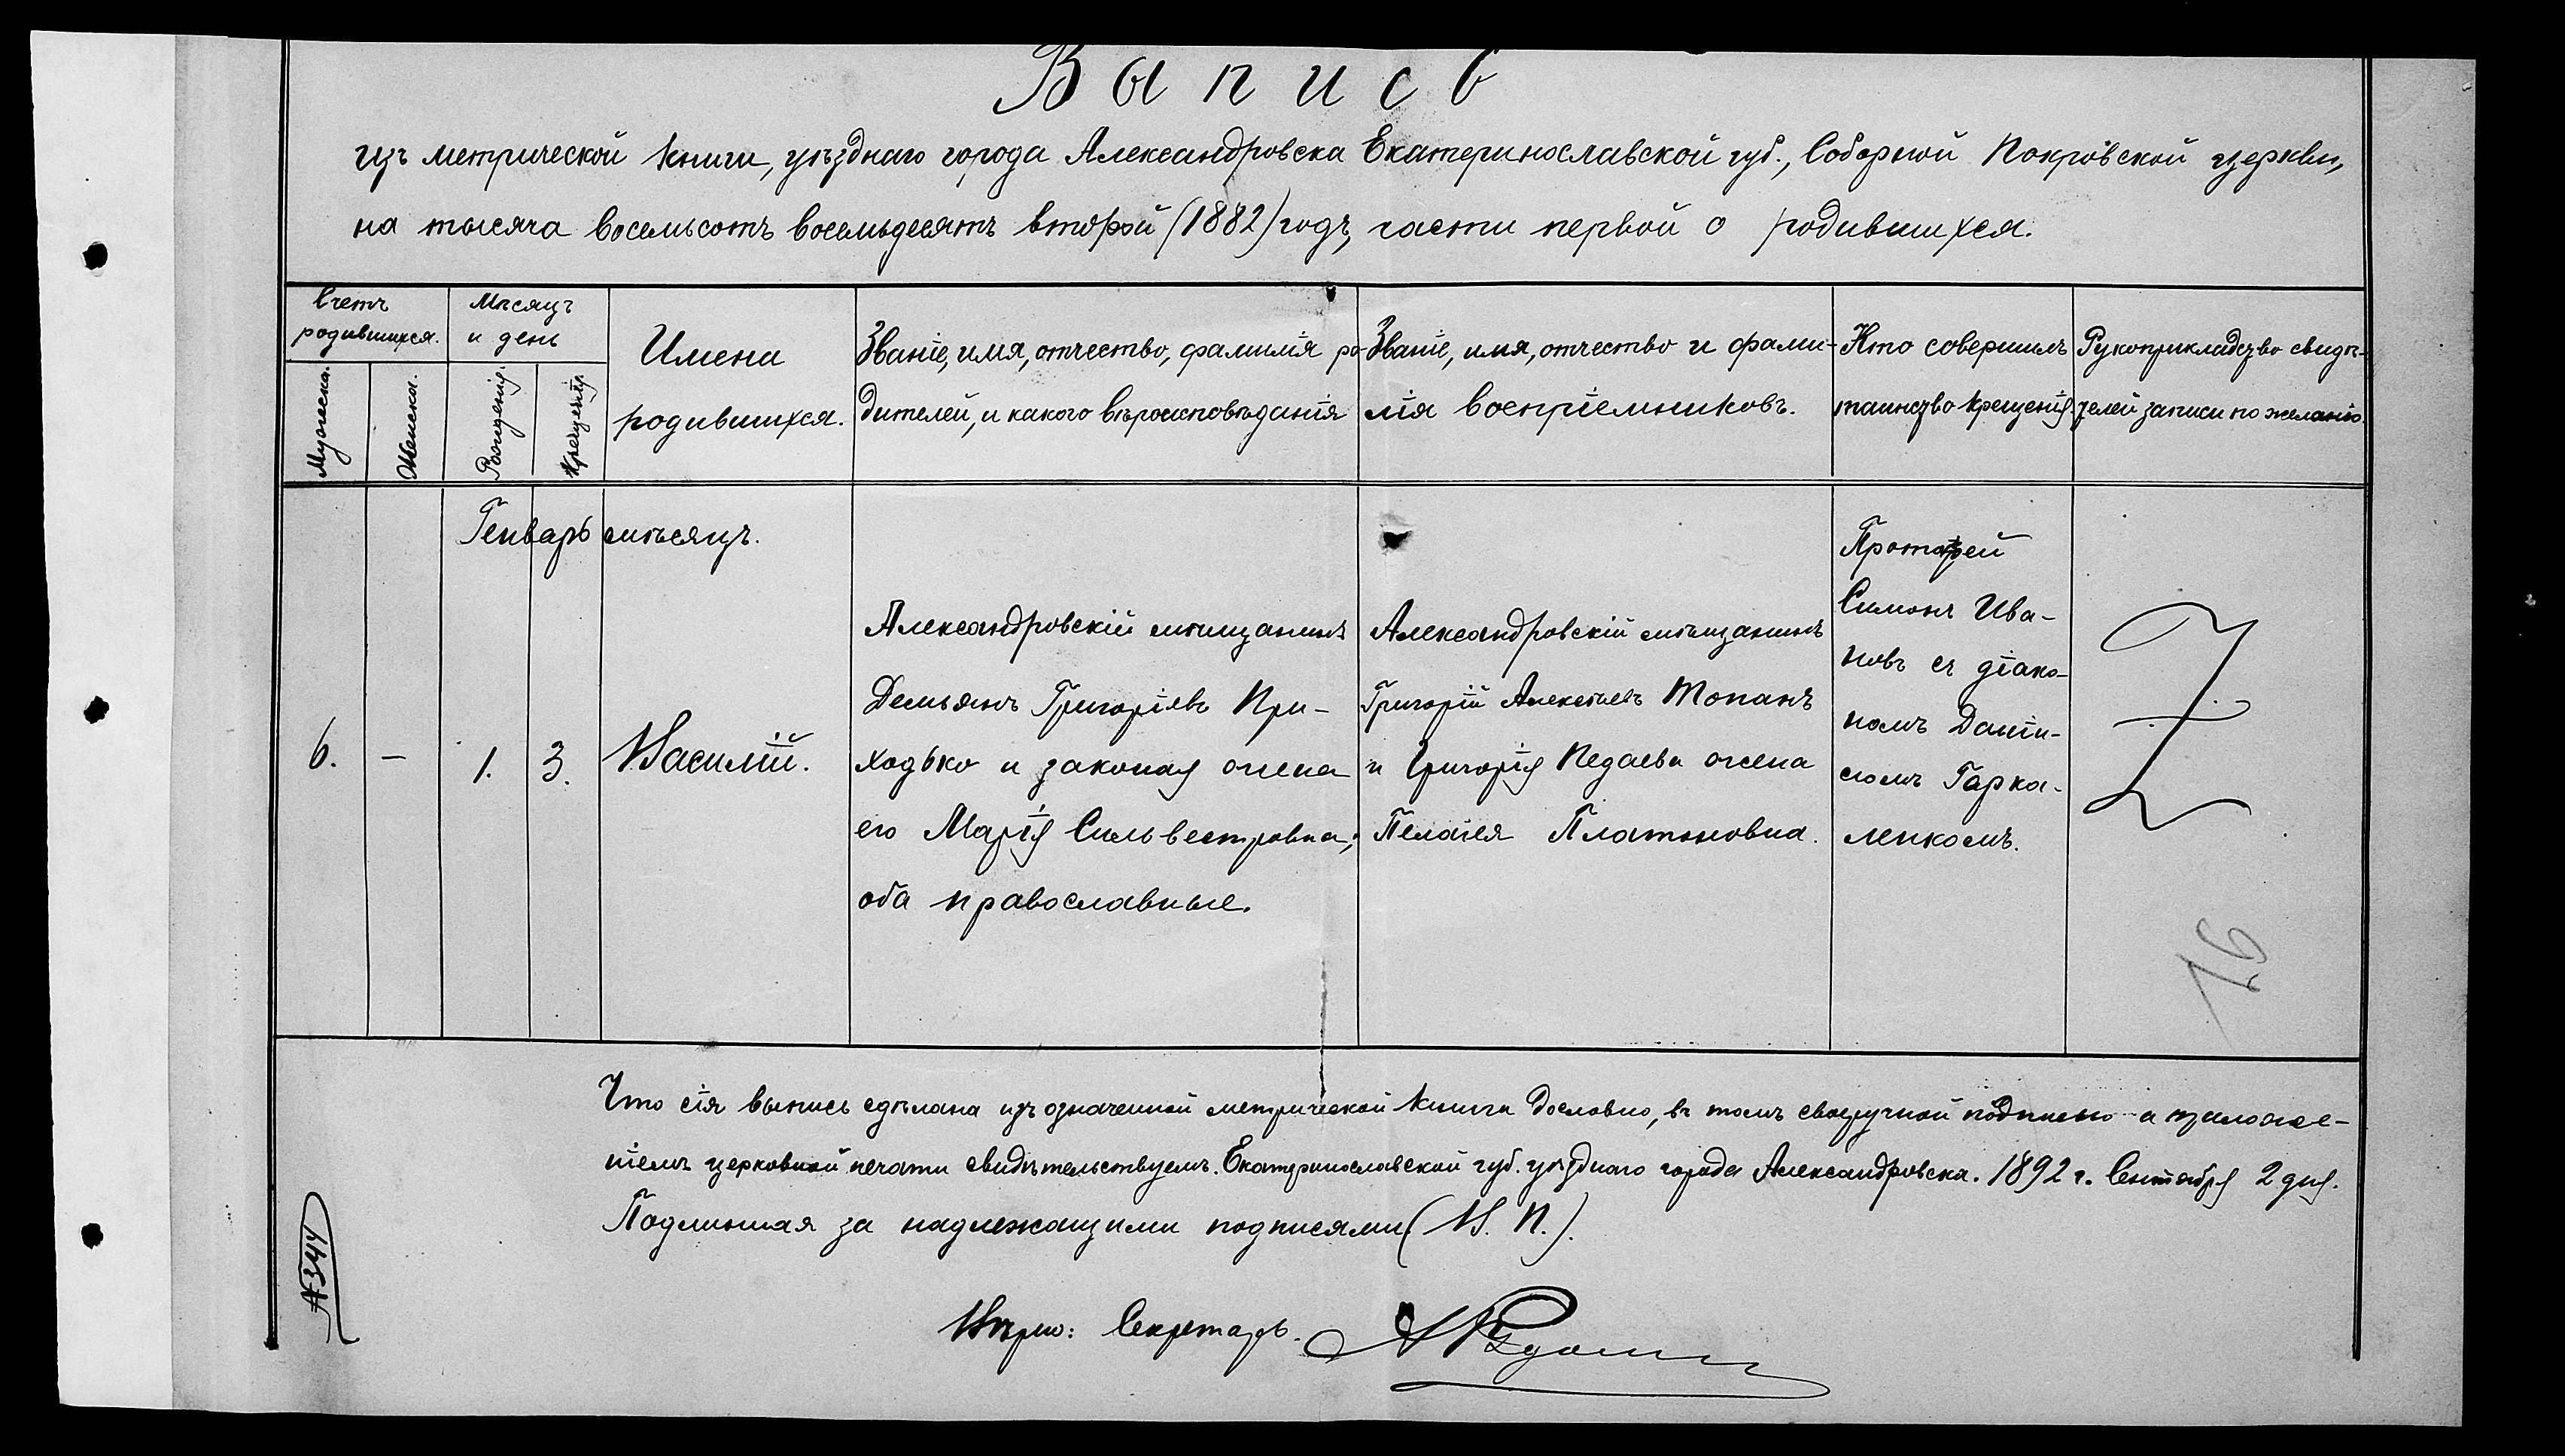 Выпись
изъ метрической книги, уѣзднаго города Александровска Екатеринославской губ., Соборной Покровской церкви,
на тысяча восемьсотъ восемьдесятъ второй (1882) годъ, части первой о родившихся.
Счетъ
родившихся.
Мужеска.
Женска.
Мѣсяцъ
и день
Рожденія.
Крещенія.
Имена
родившихся.
Званіе, имя, отчество, фамилія ро-
дителей, и какого вѣроисповѣданія
Званіе, имя, отчество и фами-
лія воспріемниковъ.
Кто совершилъ
таинство крещенія
Рукоприкладство свидѣ-
телей записи по желанію.
Генварь мѣсяцъ.
6.
-
1.
3.
Василій.
Александровскій мѣщанинъ
Демьянъ Григоріевъ При-
ходько и законая жена
его Марія Сильвестровна;
оба православные.
Александровскій мѣщанинъ
Григорій Алексѣевъ Топанъ
и Григорія Педаева жена
Пелагея Платоновна.
Протоіерей
Симонъ Ива-
новъ съ діако-
номъ Даніи-
ломъ Гарка-
ленкомъ.
76
Что сія выпись сдѣлана изъ означенной метрической книги дословно, въ томъ своеручной подписью и приложе-
ніемъ церковной печати свидѣтельствуемъ. Екатеринославской губ. уѣзднаго города Александровска. 1892 г. Сентября 2 дня.
Подлинная за надлежащими подписями. (М. П.).
Вѣрно: Секретарь.